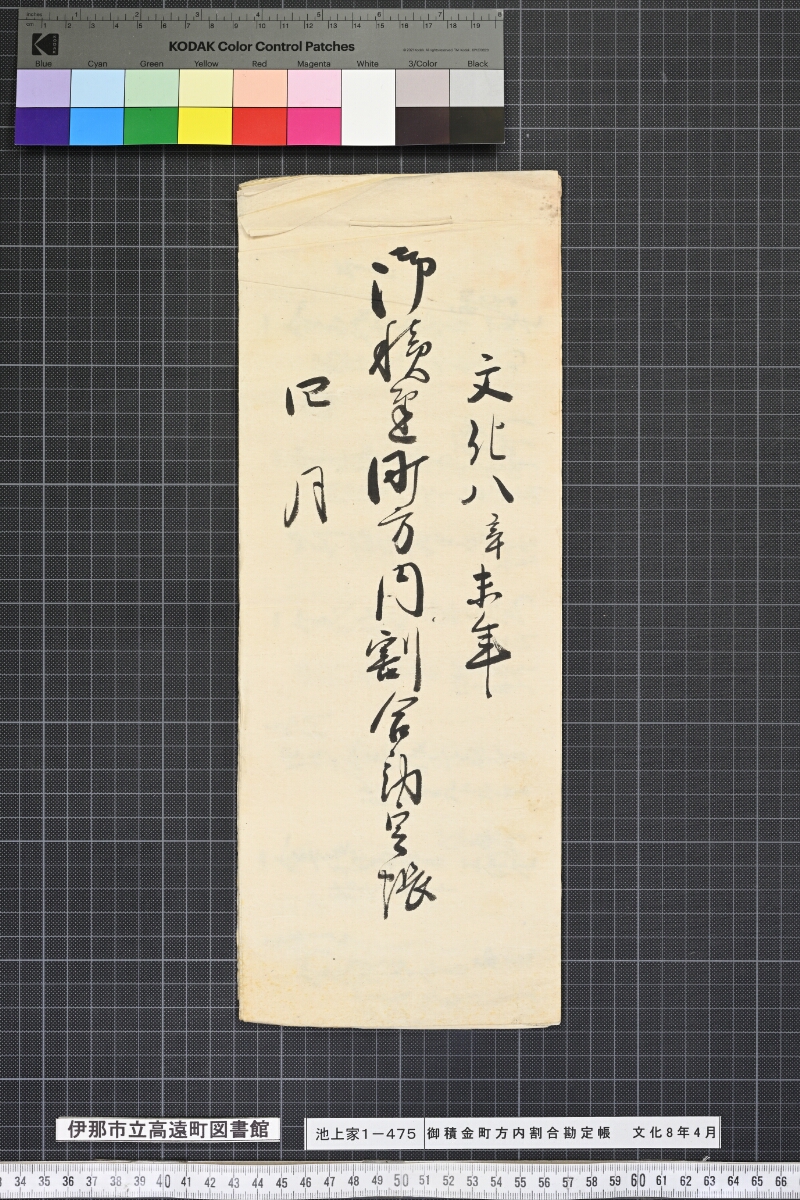 Inches 1 2 3 4 5 6 7 8
cm 1 2 3 4 5 6 7 8 9 10 11 12 13 14 15 16 17 18 19
KODAK Color Control Patches
Blue Cyan Green Yellow Red Magenta White 3/Color Black
文化八辛未年
御積金町方内割合勘定帳
四月
伊那市立高遠町図書館
池上家1－475 御積金町方内割合勘定帳 文化8年4月
34 35 36 37 38 39 40 41 42 43 44 45 46 47 48 49 50 51 52 53 54 55 56 57 58 59 60 61 62 63 64 65 66